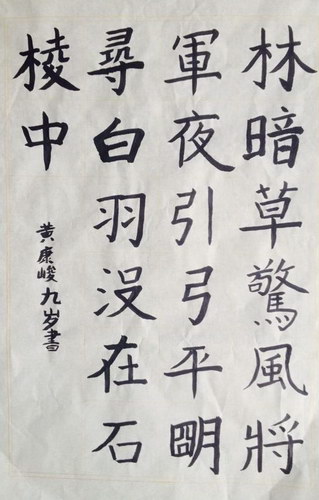 林暗草驚風將
軍夜引弓平明
尋白羽没在石
棱中
黄康峻九岁書